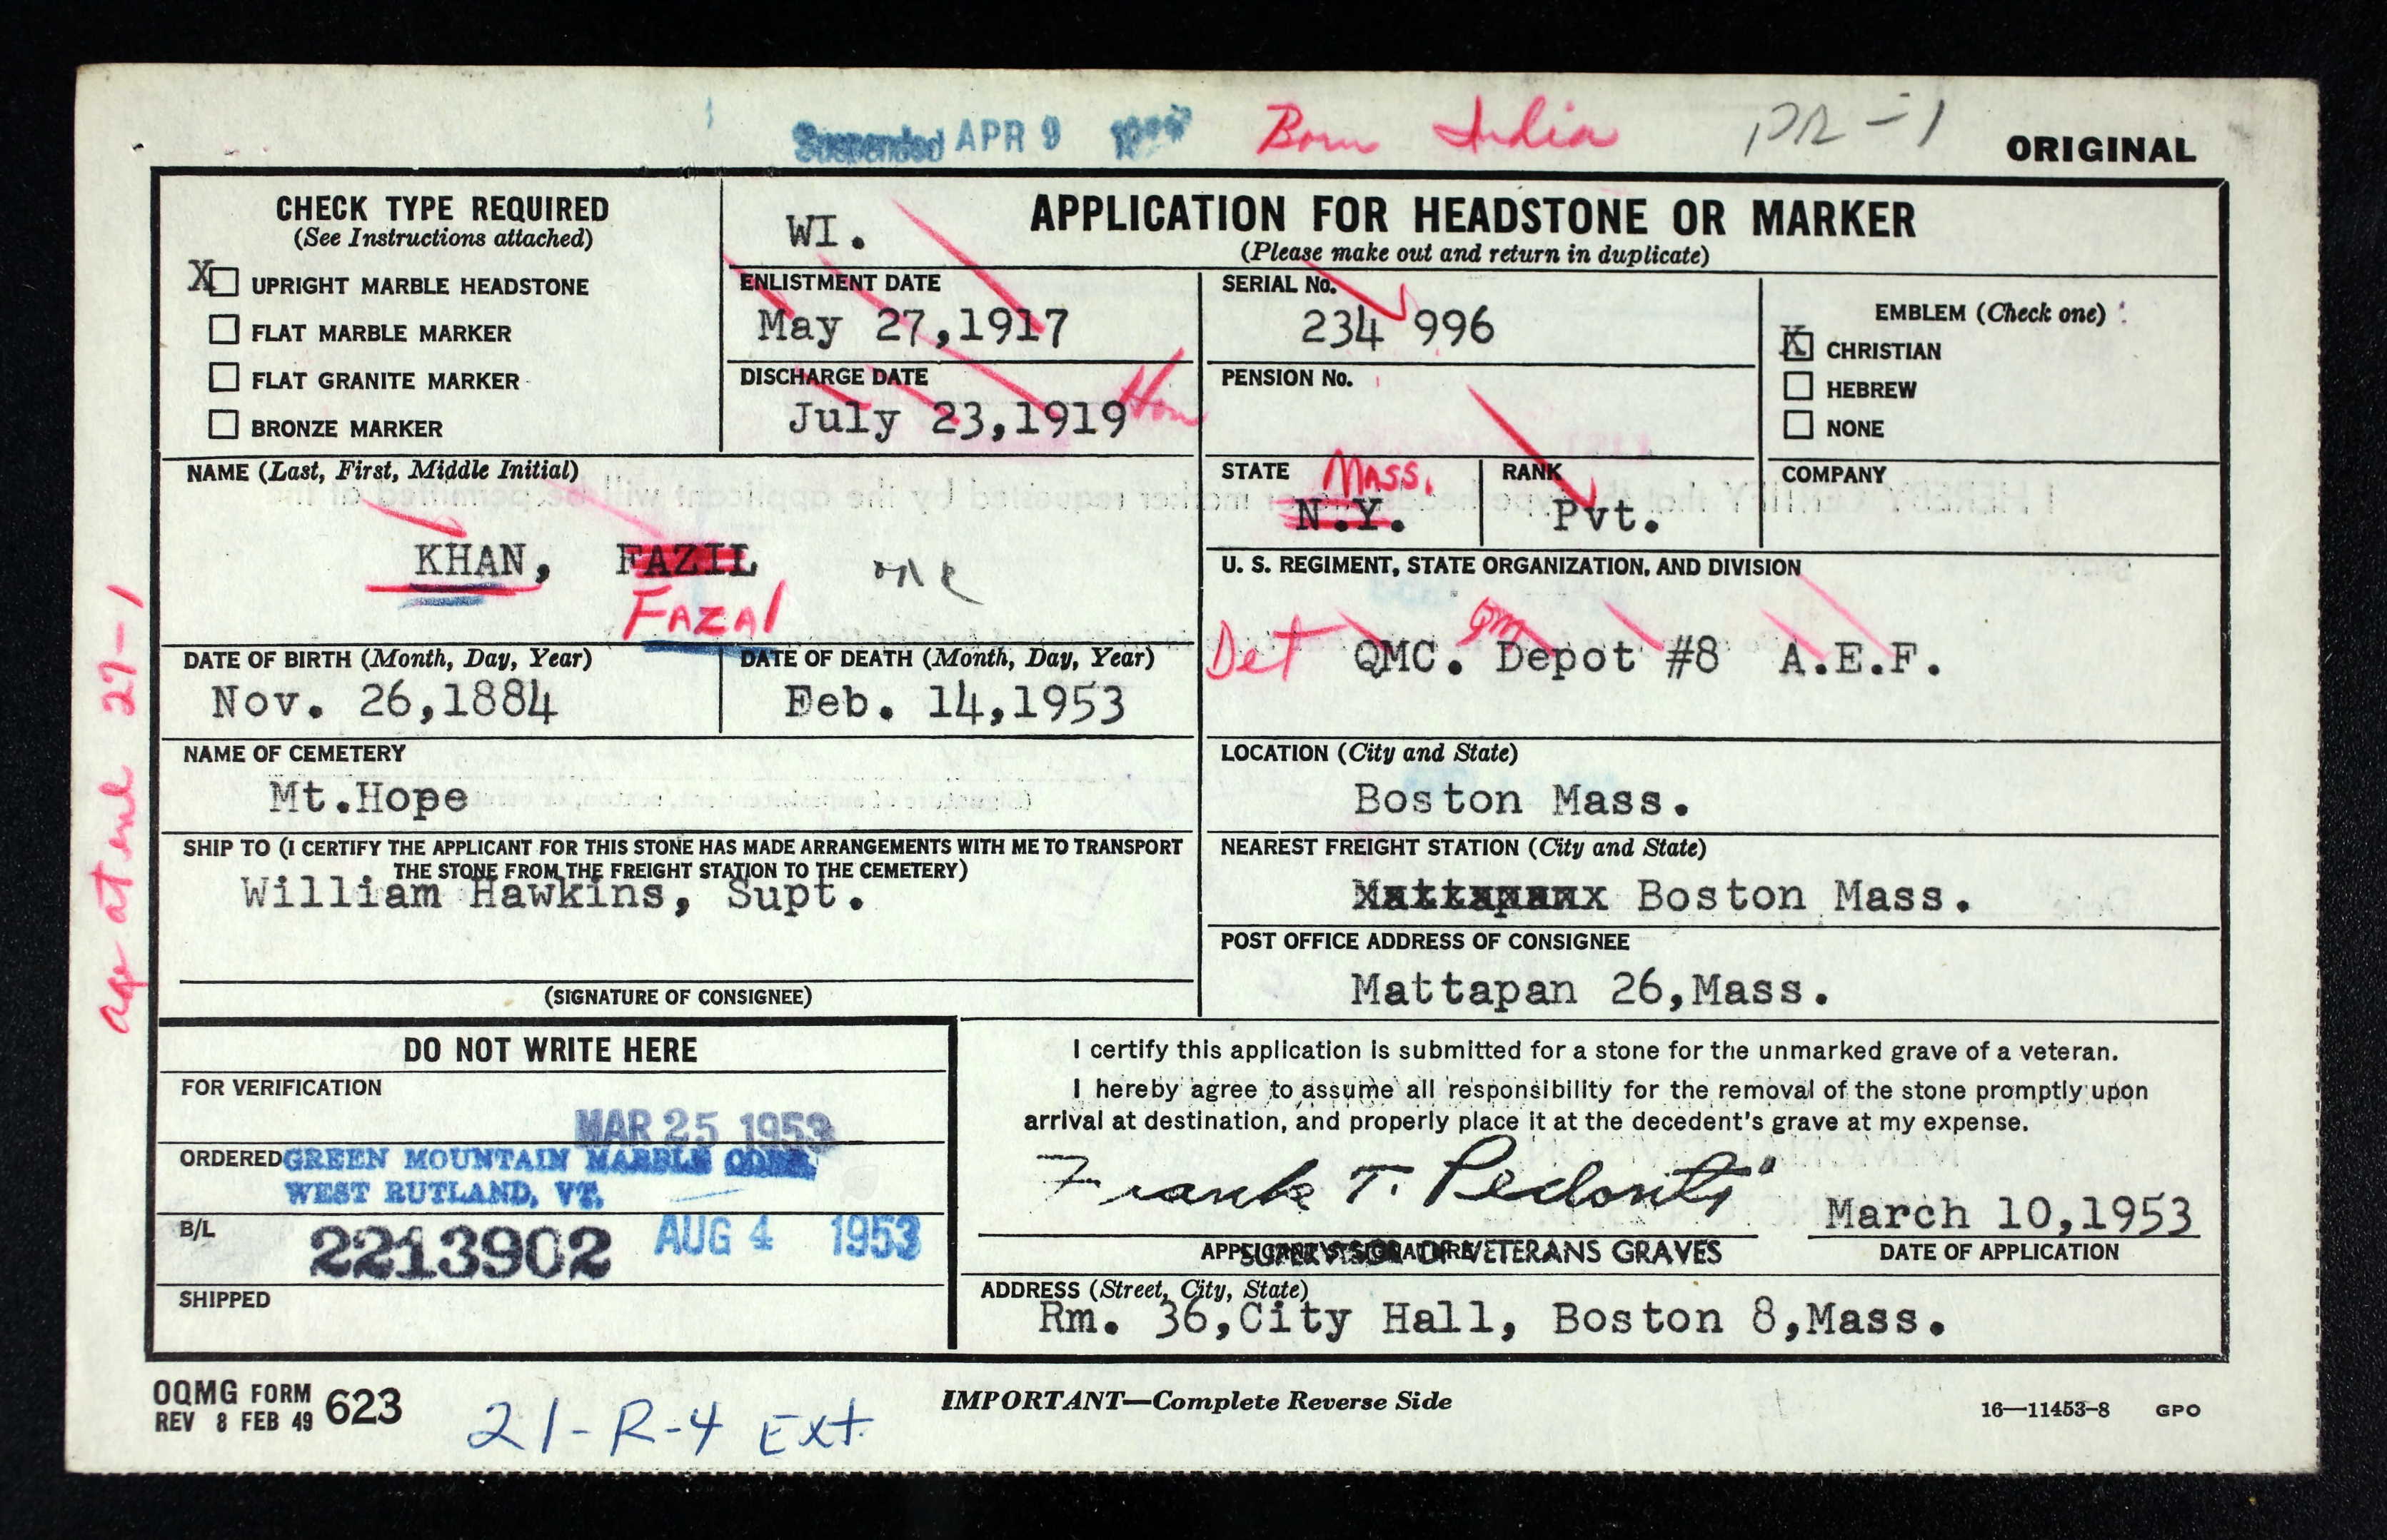 Suspended APR 9
Born India
ORIGINAL
CHECK TYPE REQUIRED
(See Instructions attached)
X UPRIGHT MARBLE HEADSTONE
FLAT MARBLE MARKER
FLAT GRANITE MARKER
BRONZE MARKER
WI.
APPLICATION FOR HEADSTONE OR MARKER
(Please make out and return in duplicate)
ENLISTMENT DATE
May 27,1917
DISCHARGE DATE
July 23,1919 Hon
SERIAL No.
234 996
PENSION No.
EMBLEM (Check one)
X CHRISTIAN
HEBREW
NONE
NAME (Last, First, Middle Initial)
KHAN, FAZIL
FAZAl
STATE Mass.
N.Y.
RANK
Pvt.
COMPANY
U. S. REGIMENT, STATE ORGANIZATION, AND DIVISION
Qm
Det QMC. Depot #8 A.E.F.
age at enl 27-1
DATE OF BIRTH (Month, Day, Year)
Nov. 26,1884
DATE OF DEATH (Month, Day, Year)
Feb. 14,1953
NAME OF CEMETERY
Mt.Hope
LOCATION (City and State)
Boston Mass.
SHIP TO (I CERTIFY THE APPLICANT FOR THIS STONE HAS MADE ARRANGEMENTS WITH ME TO TRANSPORT
THE STONE FROM THE FREIGHT STATION TO THE CEMETERY)
William Hawkins, Supt.
(SIGNATURE OF CONSIGNEE)
NEAREST FREIGHT STATION (City and State)
Boston Mass.
POST OFFICE ADDRESS OF CONSIGNEE
Mattapan 26,Mass.
DO NOT WRITE HERE
FOR VERIFICATION
MAR 25 1953
ORDERED GREEN MOUNTAIN MARBLE CORP.
WEST RUTLAND, VT.
B/L
2213902 AUG 4 1953
SHIPPED
I certify this application is submitted for a stone for the unmarked grave of a veteran.
I hereby agree to assume all responsibility for the removal of the stone promptly upon
arrival at destination, and properly place it at the decedent's grave at my expense.
Frank T. Pedonti
March 10,1953
APPLICANT'S SIGNATURE
SUPERVISOR OF VETERANS GRAVES
DATE OF APPLICATION
ADDRESS (Street, City, State)
Rm. 36,City Hall, Boston 8,Mass.
OQMG FORM 623
REV 8 FEB 49
21-R-4 Ext.
IMPORTANT—Complete Reverse Side
16—11453-8 GPO